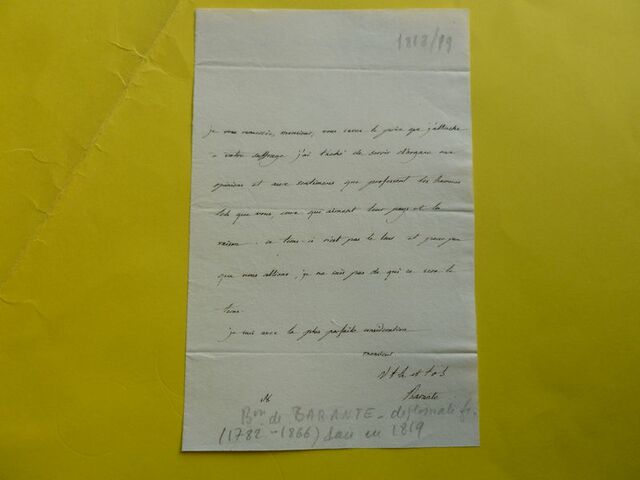 1818/19
je vous remercie, monsieur, vous savez le prix que j'attache
a votre suffrage j'ai tâché de servir d'organe aux
opinions et aux sentimens que professent les hommes
tels que vous, ceux qui aiment leur pays et la
raison. ce tems-ci n'est pas le leur et pour peu
que nous allions, je ne sais pas de qui ce sera le
tems.
je suis avec la plus parfaite considération
monsieur
v t h et t o s
Barante
Bon de BARANTE - diplomate fr.
(1782-1866) en 1819